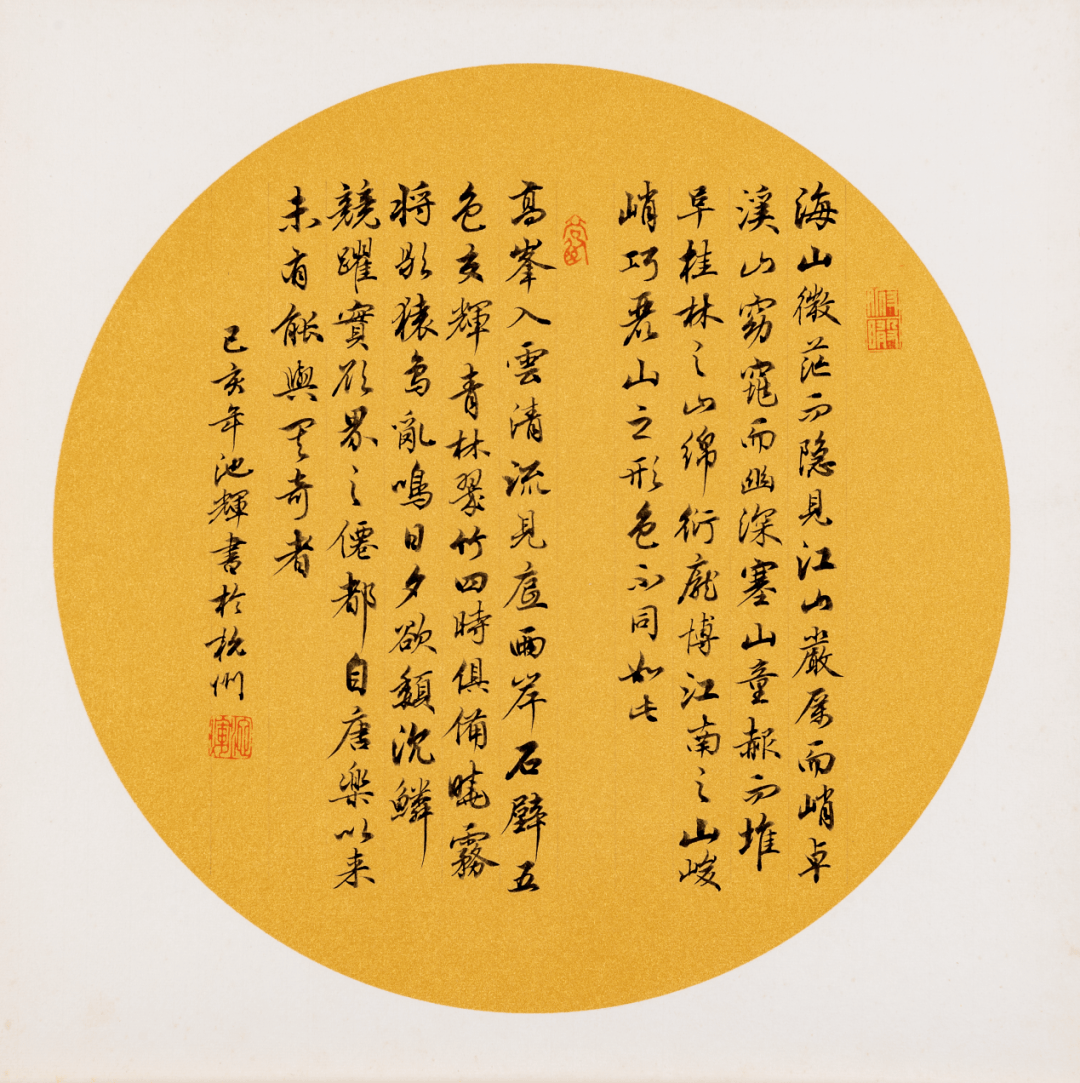 海山微茫而隐見江山嚴厲而峭卓
溪山窈窕而幽深塞山童赧而堆
阜桂林之山綿衍龐博江南之山峻
峭巧麗山之形色不同如此
高峯入雲清流見底兩岸石壁五
色交輝青林翠竹四時俱備曉霧
将歇猿鳥亂鳴日夕欲頹沈鱗
競躍實欲界之僊都自唐樂以来
未有能與其奇者
己亥年池輝書於杭州